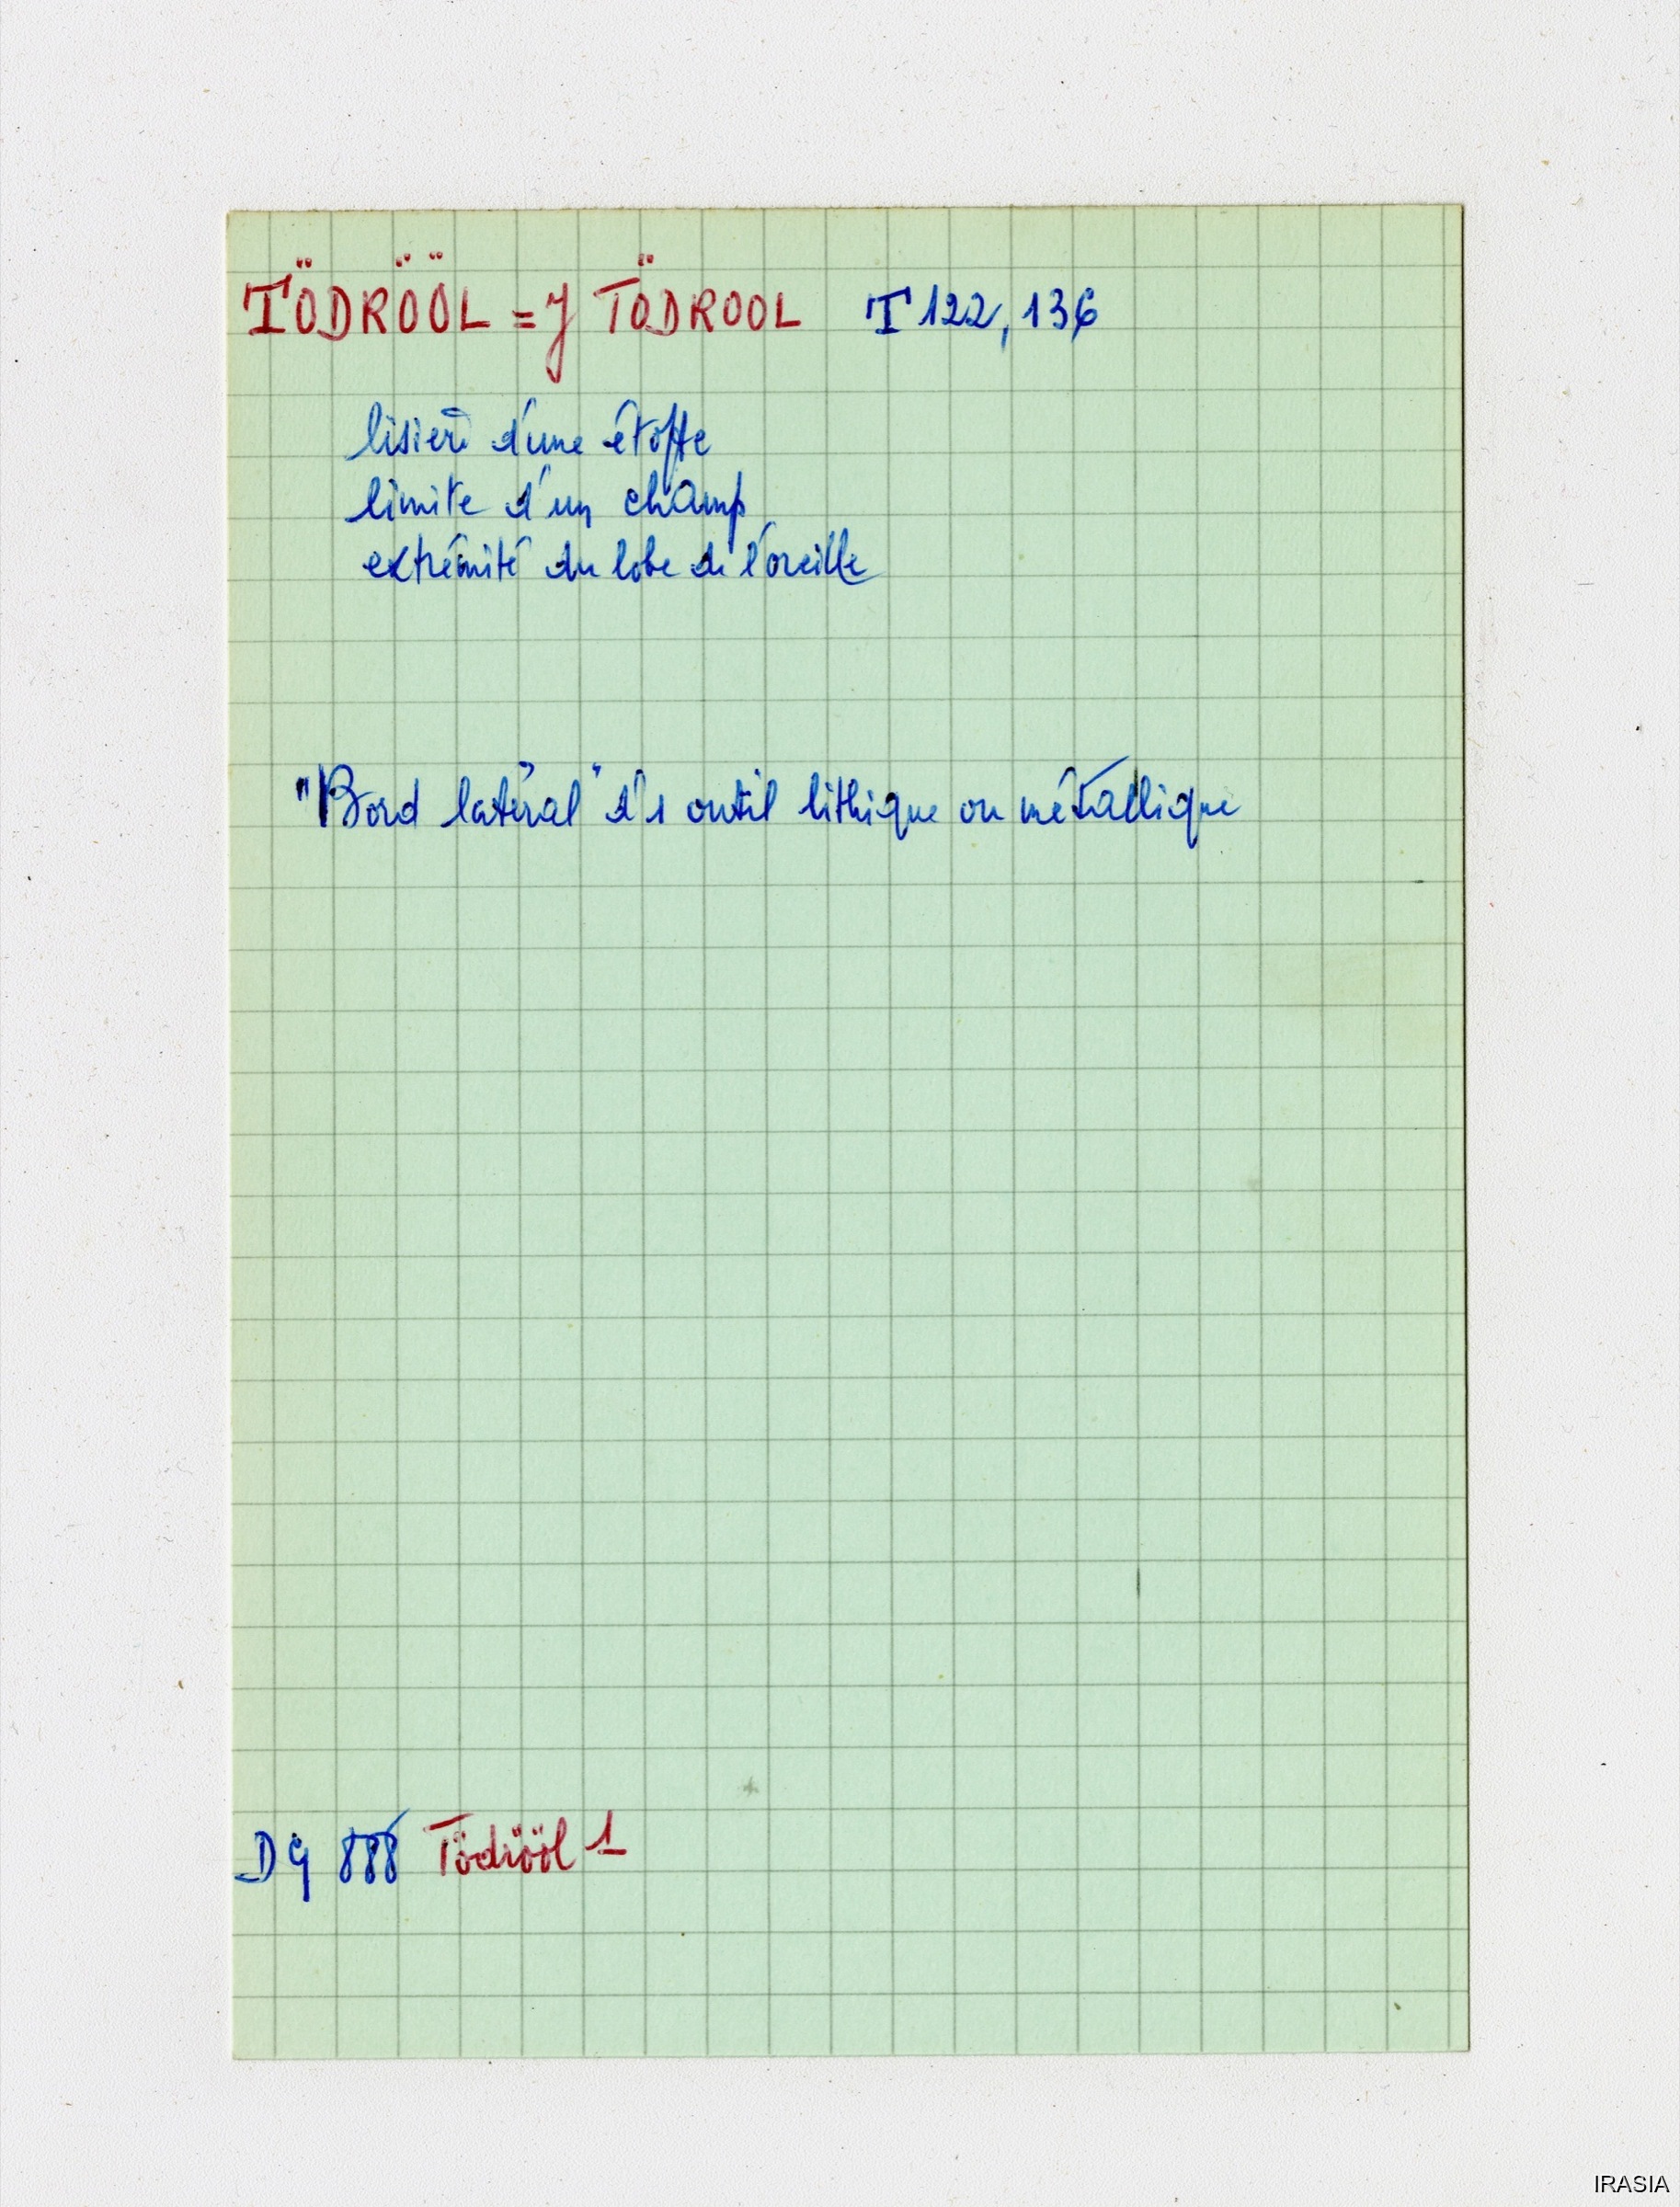 TÖDRÖÖL = J TÖDROOL T 122, 136
lisière d'une étoffe
limite d'un champ
extrémité du lobe de l'oreille
"Bord latéral" d'1 outil lithique ou métallique
DG 888 Tödrööl 1
IRASIA